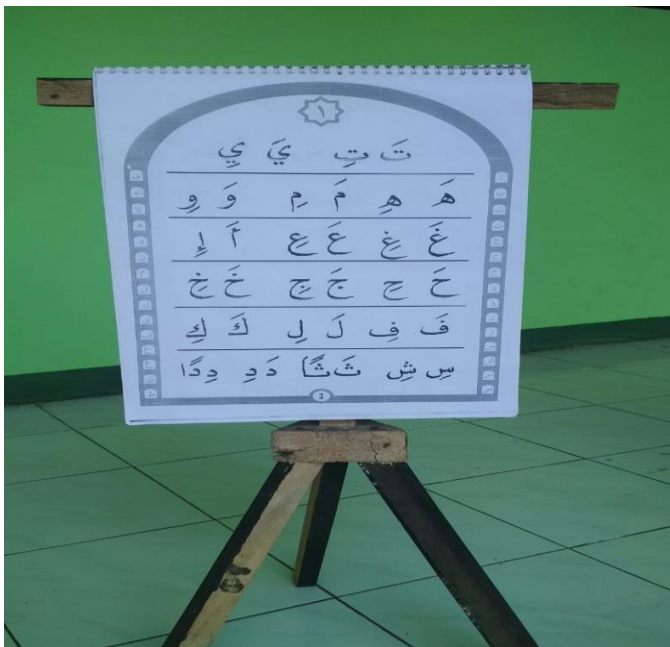 ١
تَ تِ يَ يِ
هَ هِ مَ مِ وَ وِ
غَ غِ عَ عِ أَ إِ
حَ حِ جَ جِ خَ خِ
فَ فِ لَ لِ كَ كِ
سِ شِ ثَ ثًا دَ دِ دِدًا
2